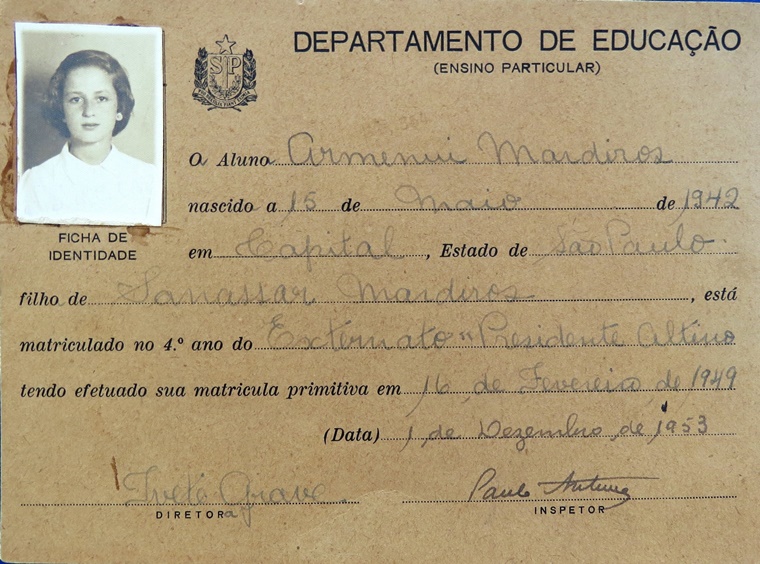 DEPARTAMENTO DE EDUCAÇÃO
(ENSINO PARTICULAR)
SP
FICHA DE
IDENTIDADE
O Aluno Armenui Mardiros
nascido a 15 de Maio de 1942
em Capital, Estado de São Paulo.
filho de Sanassar Mardiros, está
matriculado no 4.º ano do Externato "Presidente Altino
tendo efetuado sua matricula primitiva em 16 de Fevereiro de 1949
(Data) 1 de Dezembro de 1953
Paulo Antunes
DIRETORa INSPETOR